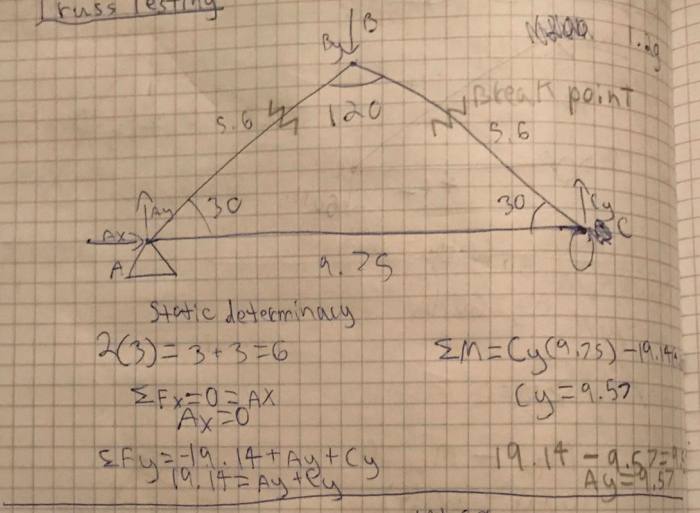 Truss Testing
B
By
1.2g
Break point
120
5.6
5.6
Ay
30
30
Cy
Ax
C
A
9.75
Static determinacy
2(3) = 3 + 3 = 6
ΣM = Cy(9.75) - 19.14
ΣFx = 0 = Ax
Cy = 9.57
Ax = 0
ΣFy = -19.14 + Ay + Cy
19.14 - 9.57 =
19.14 = Ay + Cy
Ay = 9.57